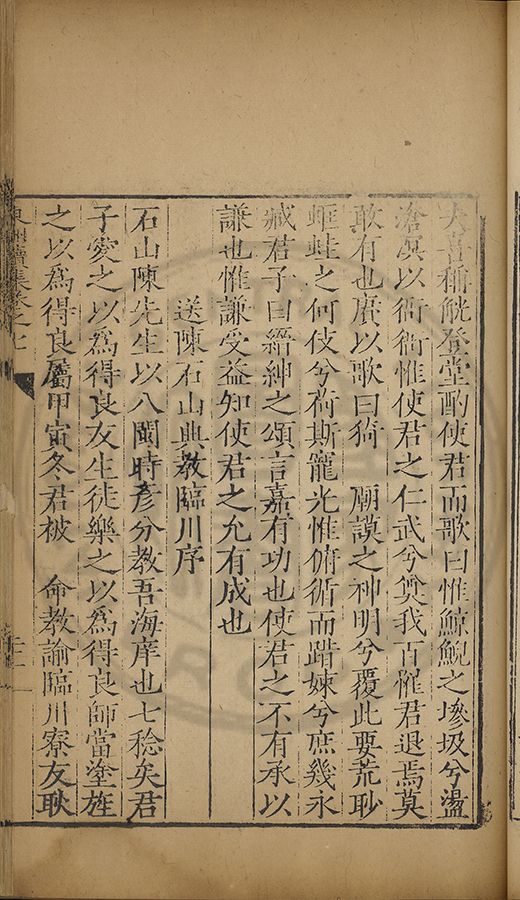 夫喜稱觥登堂酌使君而歌曰惟鯨鯢之墋圾兮盪
滄溟以衝衝惟使君之仁武兮奠我百罹君退焉莫
敢有也賡以歌曰猗 廟謨之神明兮覆此要荒眇
蚷蛙之何伎兮荷斯寵光惟俯循而踖竦兮庶幾永
臧君子曰縉紳之頌言嘉有功也使君之不有承以
謙也惟謙受益知使君之允有成也
送陳石山典教臨川序
石山陳先生以八閩時彥分教吾海庠也七稔矣君
子愛之以為得良友生徒樂之以為得良師當塗旌
之以爲得良屬甲寅冬君被 命教諭臨川寮友耿
東洲續集卷之七